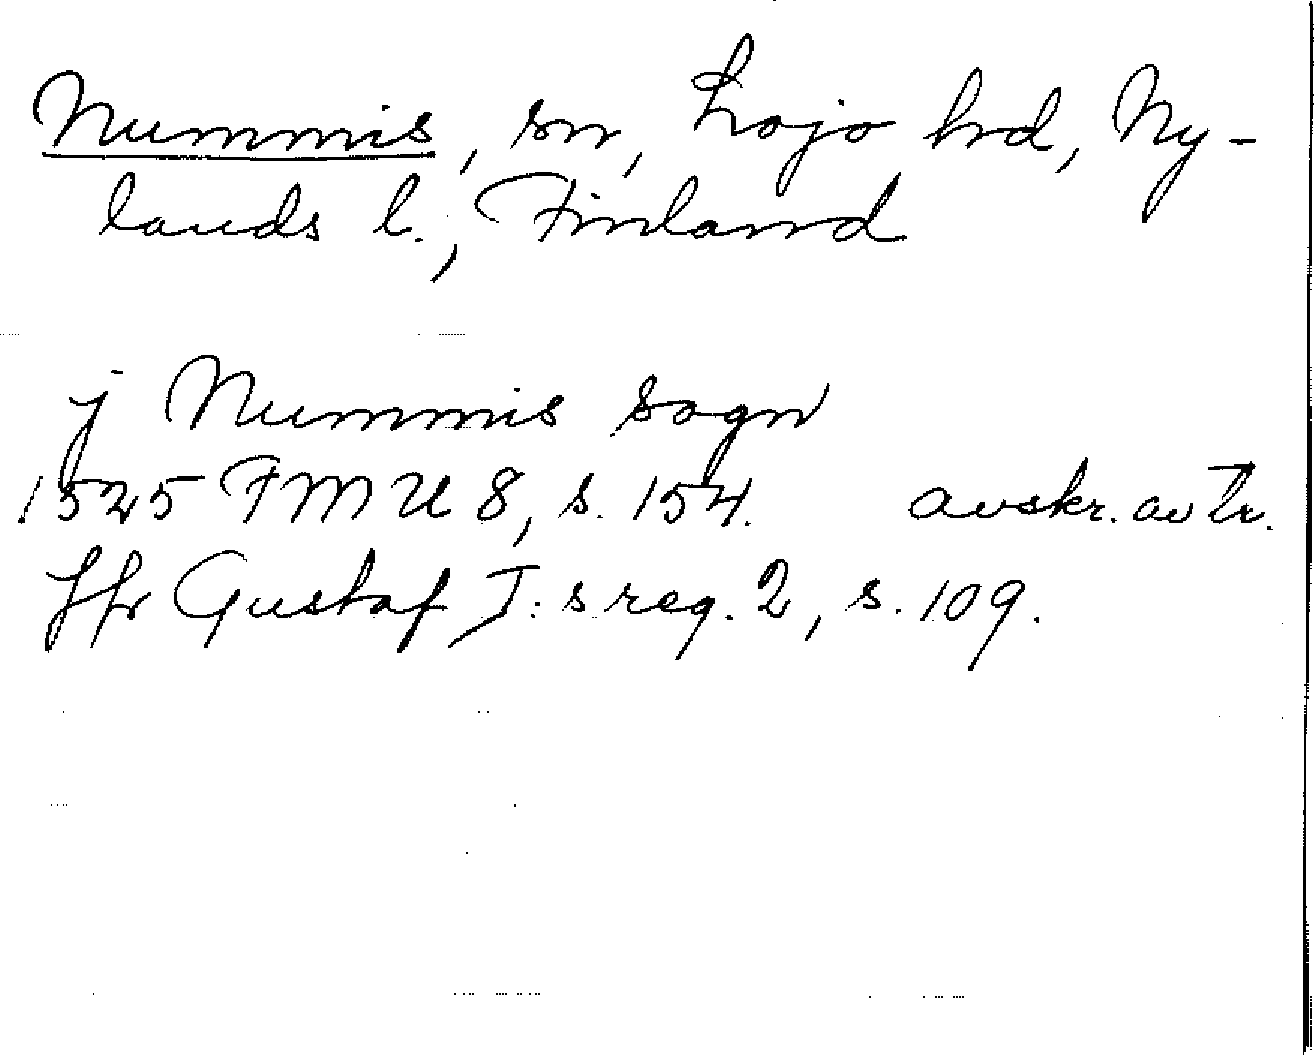 Nummis, sn, Lojo hrd, Ny-
lands l., Finland
j Nummis sogn
1525 FMU 8, s. 154. avskr. av tr.
Jfr Gustaf I:s reg. 2, s. 109.